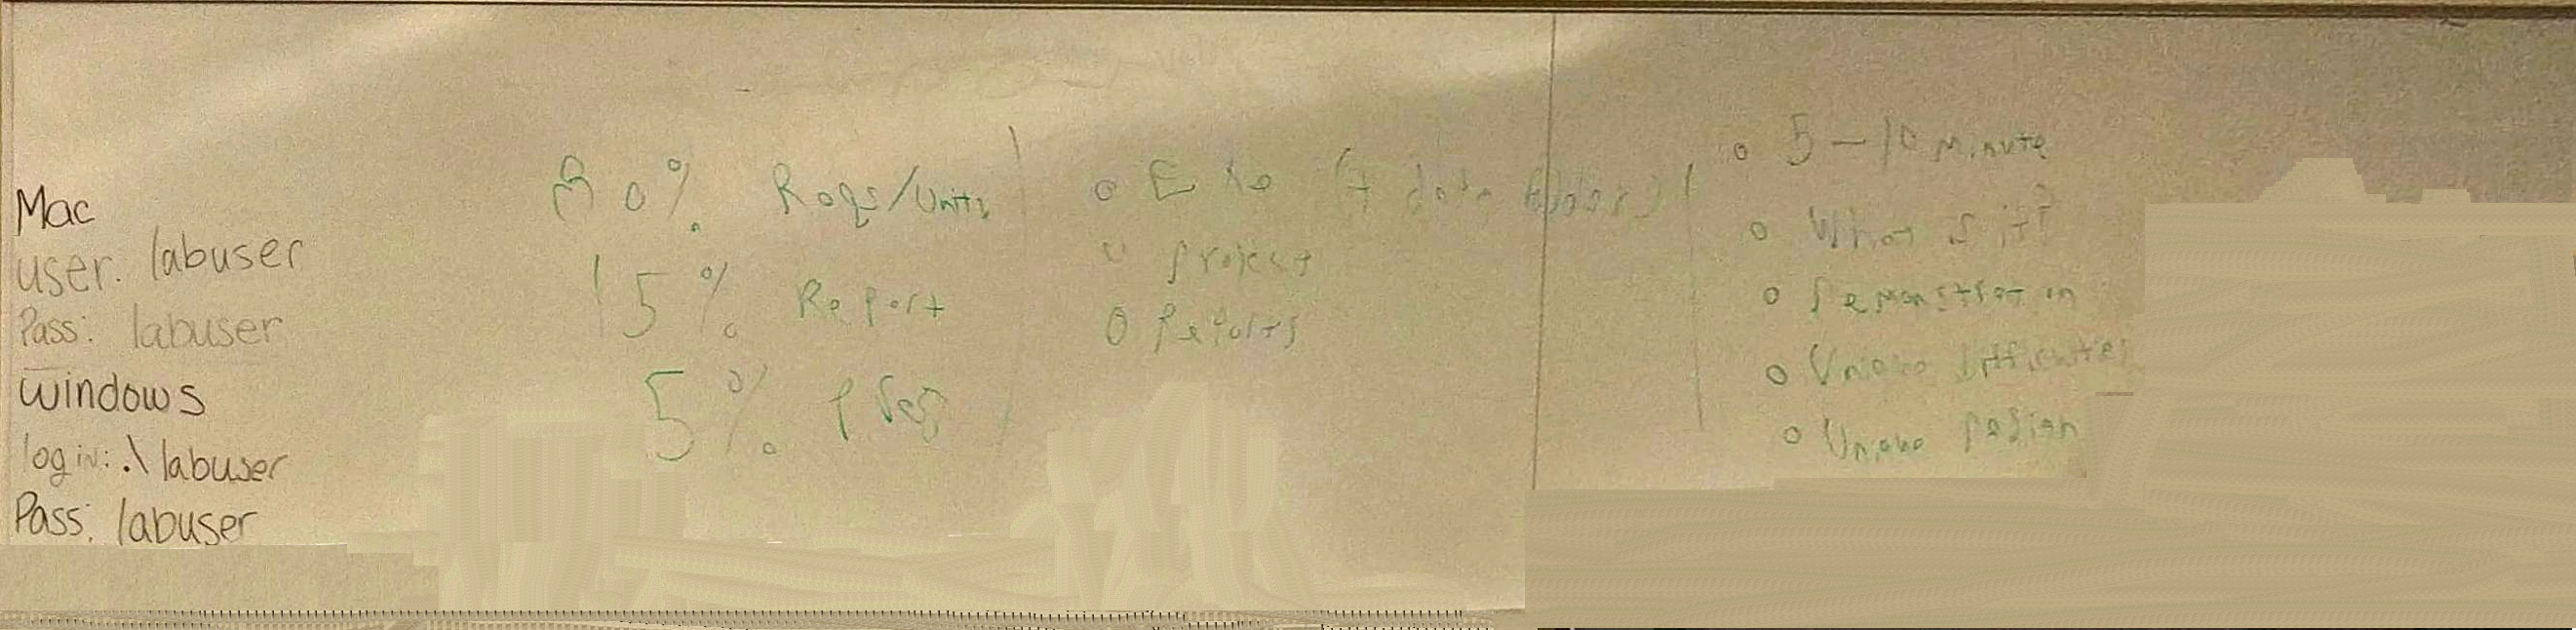 Mac
user: labuser
Pass: labuser
Windows
login: .\labuser
Pass: labuser
80% Reqs/Units
15% Report
5% Pres
o Exe (+ data folder)
o project
o Reports
o 5-10 Minute
o What is it?
o Demonstration
o Unique Difficulties
o Unique Design